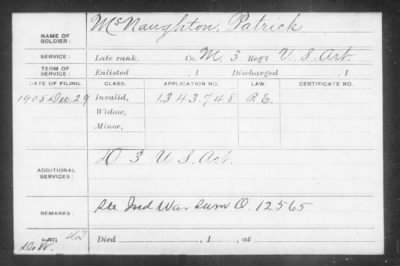 NAME OF SOLDIER: McNaughton, Patrick
SERVICE: Late rank, Co. M, 3 Reg't U. S. Art.
TERM OF SERVICE: Enlisted , 1 Discharged , 1
DATE OF FILING. CLASS. APPLICATION NO. LAW. CERTIFICATE NO.
1905 Dec. 29 Invalid, 1343.748 R.E.
Widow,
Minor,
ADDITIONAL SERVICES: D 3 U.S. Art.
REMARKS: See Ind War Surv O. 12565
Died , 1 , at